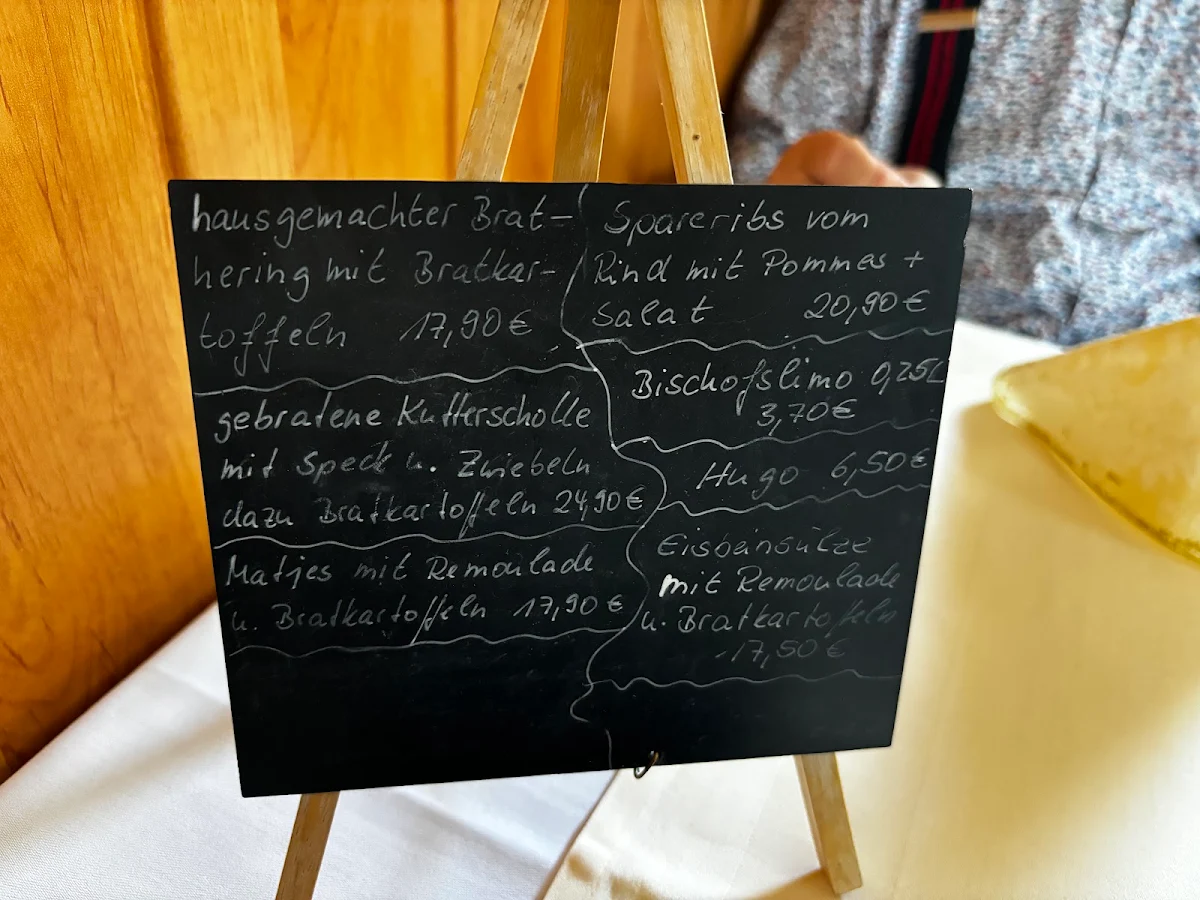 hausgemachter Brat-
hering mit Bratkar-
toffeln 17,90 €
gebratene Kutterscholle
mit Speck u. Zwiebeln
dazu Bratkartoffeln 24,90 €
Matjes mit Remoulade
u. Bratkartoffeln 17,90 €
Spareribs vom
Rind mit Pommes +
Salat 20,90 €
Bischofslimo 0,25L
3,70 €
Hugo 6,50 €
Eisbeinsülze
mit Remoulade
u. Bratkartoffeln
17,50 €